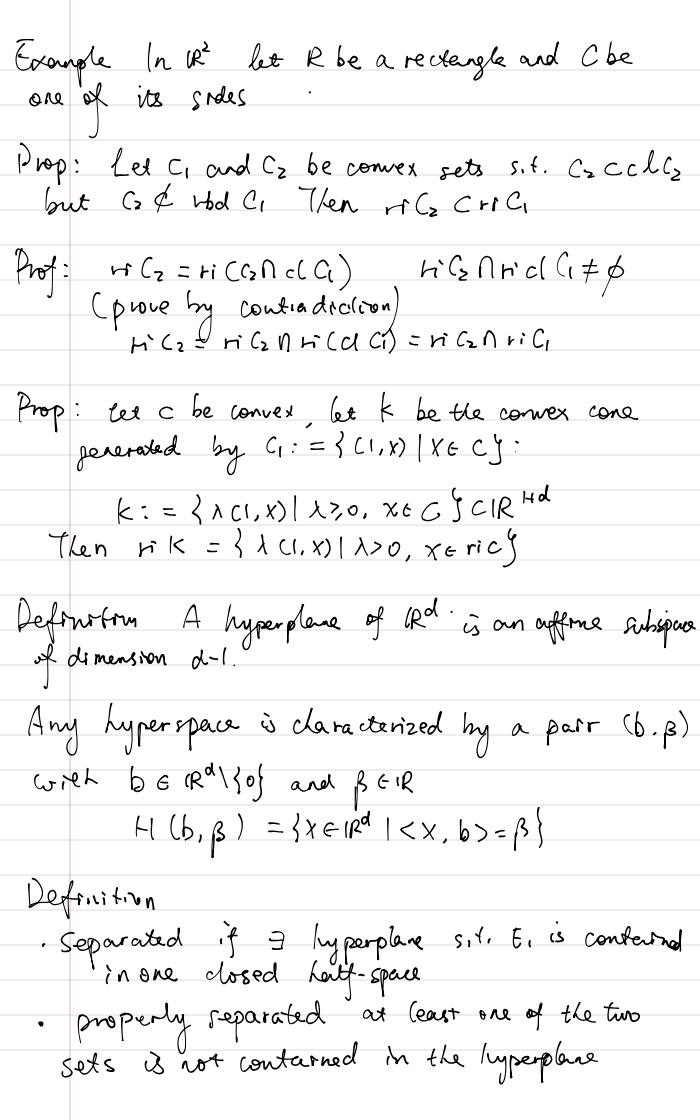 Example In ℝ² let R be a rectangle and C be
one of its sides
Prop: Let C₁ and C₂ be convex sets s.t. C₂ ⊂ cl C₂
but C₂ ⊄ rbd C₁ Then ri C₂ ⊂ ri C₁
Prof: ri C₂ = ri (C₂ ∩ cl C₁) ri C₂ ∩ ri cl C₁ ≠ ϕ
(prove by contradiction)
ri C₂ = ri C₂ ∩ ri (cl C₁) = ri C₂ ∩ ri C₁
Prop: let c be convex, let k be the convex cone
generated by C₁ := {(1,x) | x ∈ C}:
k := {λ(1,x) | λ ≥ 0, x ∈ C} ⊂ ℝ^{1+d}
Then ri k = {λ(1,x) | λ > 0, x ∈ ri c}
Definition A hyperplane of ℝᵈ is an affine subspace
of dimension d-1.
Any hyperspace is characterized by a pair (b.β)
with b ∈ ℝᵈ\{0} and β ∈ ℝ
H (b, β) = {x ∈ ℝᵈ | <x, b> = β}
Definition
· Separated if ∃ hyperplane s.t. E₁ is contained
in one closed half-space
· properly separated at least one of the two
sets is not contained in the hyperplane